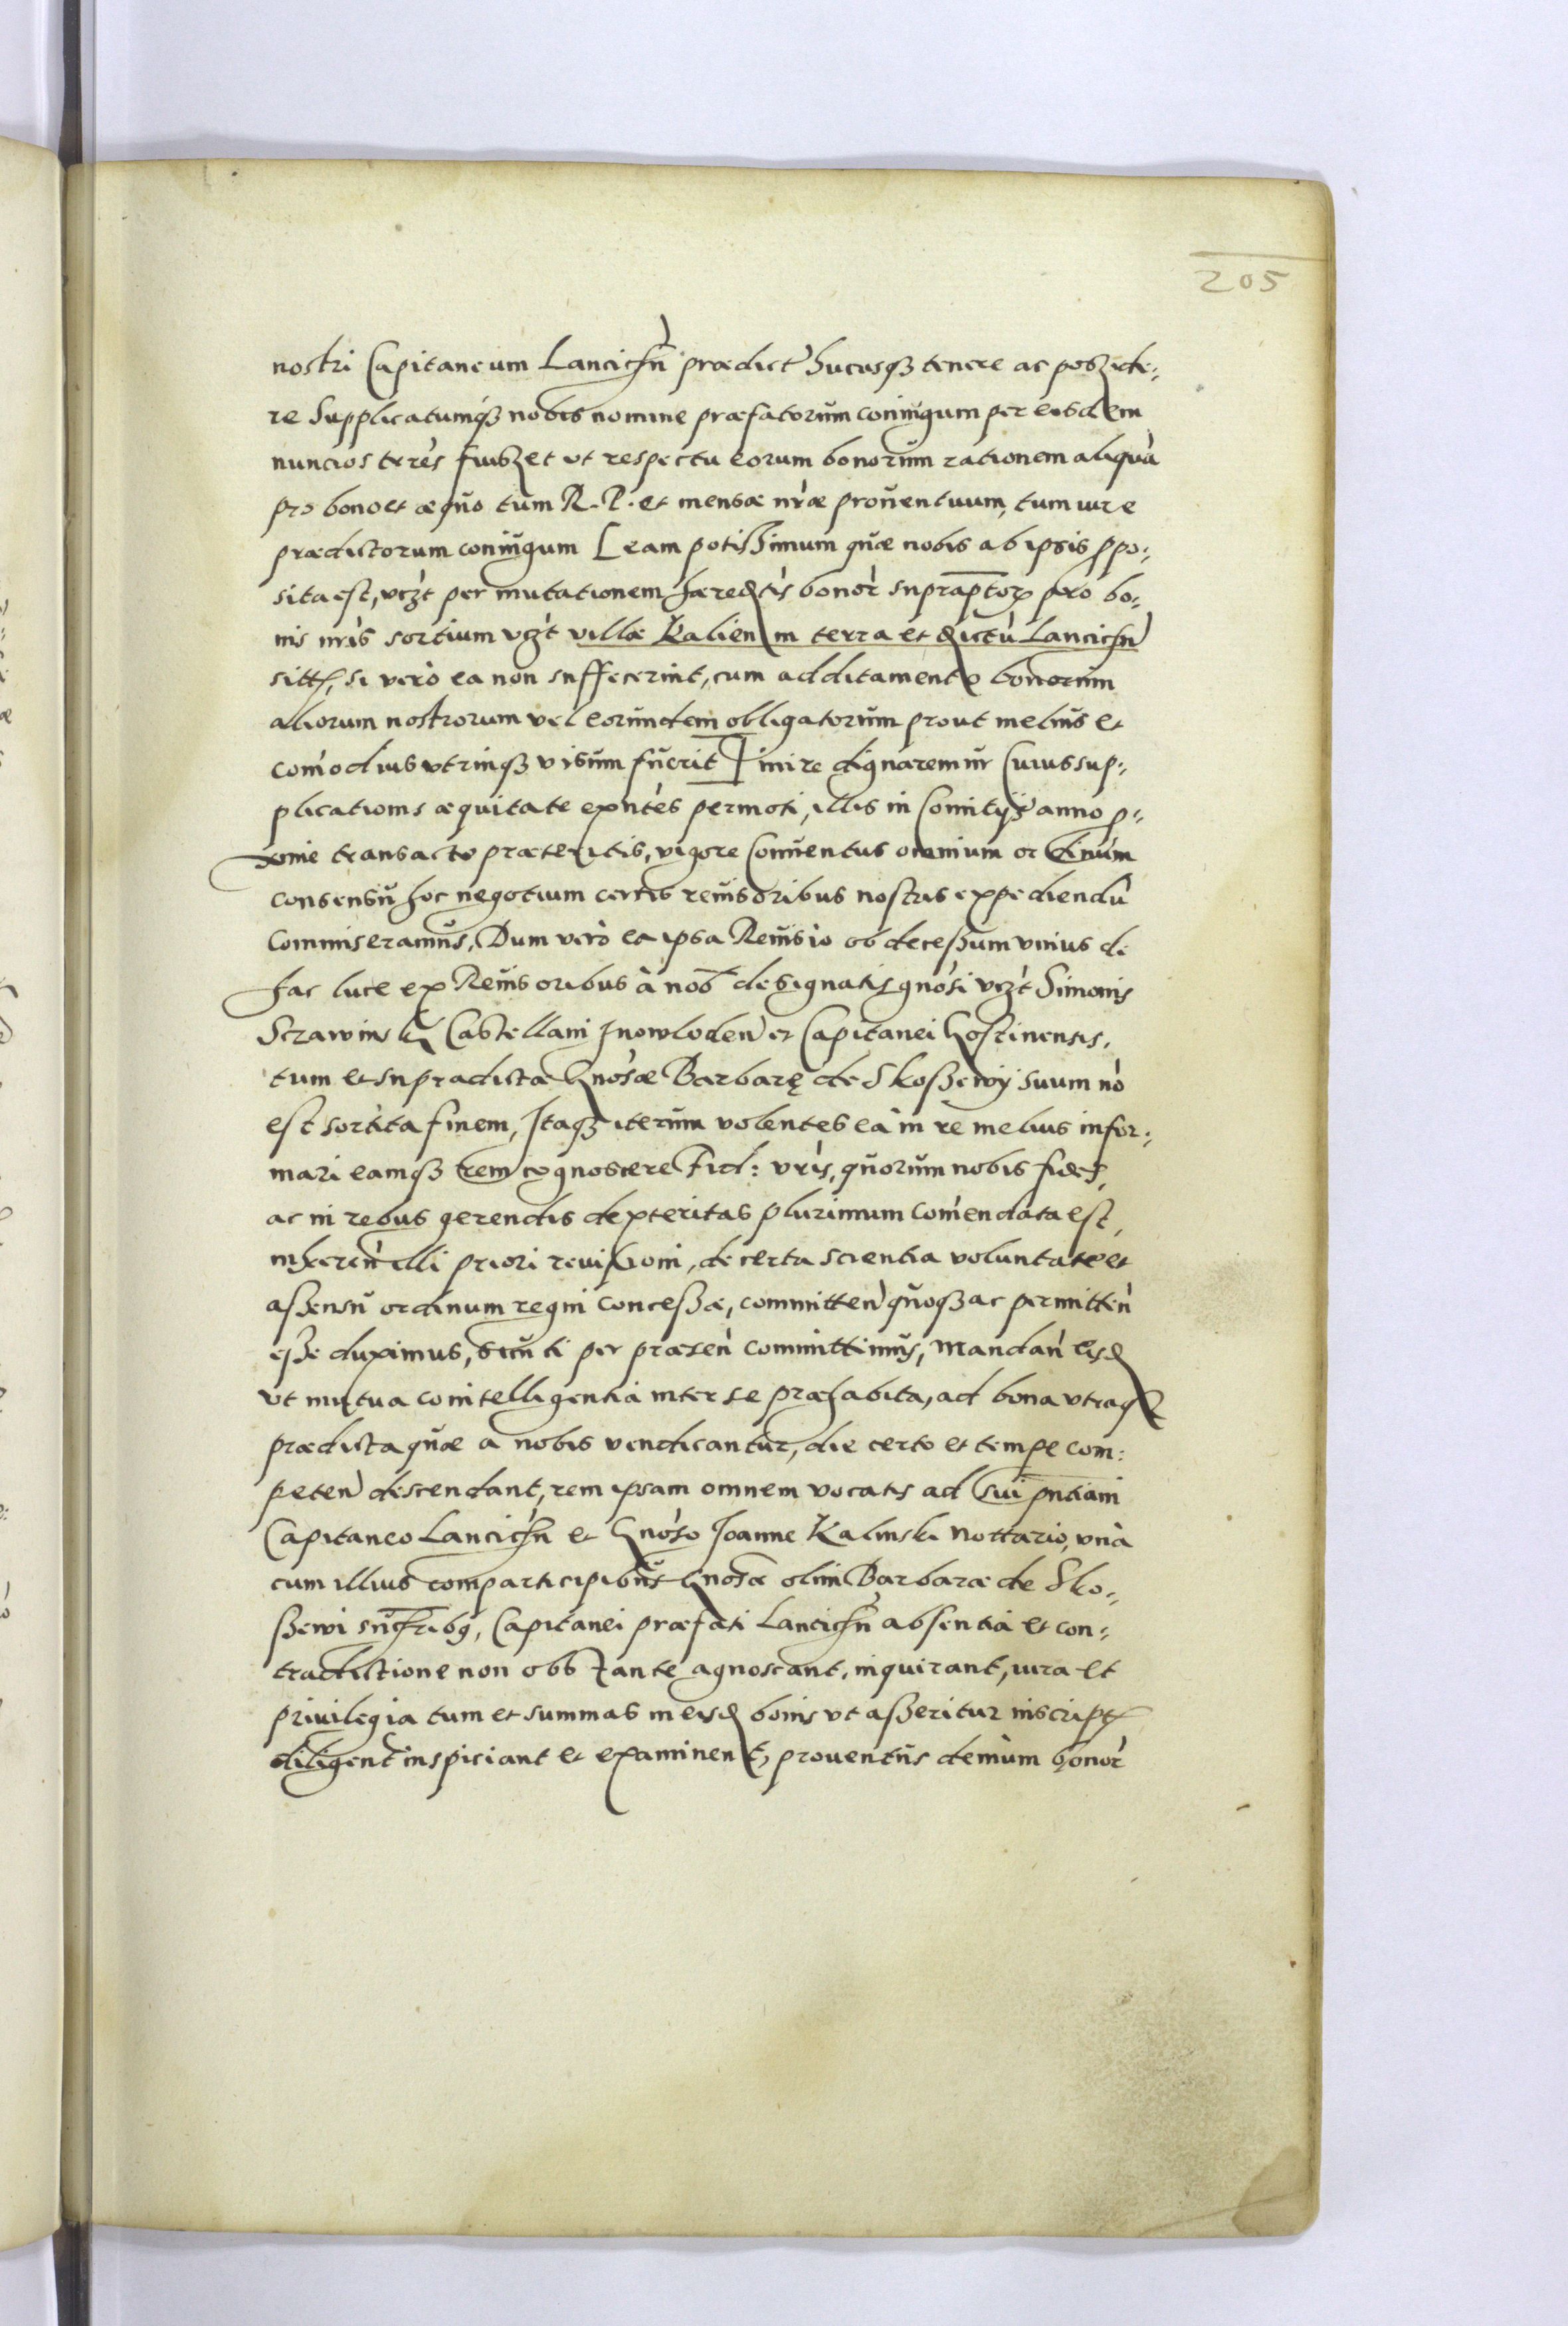 205
nostri Capitaneum Lancicñ prædict hucusq3 tenere ac posside:
re Supplicatumq3 nobis nomine præfatorum coniugum per eosdem
nuncios trẽs fuisset ut respectu eorum bonorum rationem aliquã
pro bono et æquo tum R. P. et mensæ nræ prouentuum, tum iure
prædictorum coniugum [eam potissimum quæ nobis ab ipsis ppo:
sita est, vczt per mutationem hæredtis bonor supraptor pro bo:
nis nris sortium vzt villæ Kalien in terra et dictu Lancicñ
sitt, si verò ea non suffecerint, cum additamento bonorum
aliorum nostrorum vel eorundem obligatorum prout melius et
comodius vtrinq3 visum fuerit] inire dignaremur Cuius sup:
plicationis æquitate expntes permoti, illis in Comitijs anno p:
xime transacto præteritis, vigore Conuentus omnium ordinum
consensu hoc negotium certis reuisoribus nostris expediendu
Commiseramus, Dum verò ea ipsa Reuisio ob decessum vnius de
hac luce ex Reuisoribus à nob designatis gnosi vczt Simonis
Szrawinski Castellani Inowloden et Capitanei Gostinensis,
tum et supradictæ Gnosæ Barbarę de Skossewy suum no
est sortita finem, Itaq3 iterum volentes eà in re melius infor:
mari eamq3 rem cognoscere Fid: vris, quorum nobis fides,
ac in rebus gerendis dexteritas plurimum comendata est,
inheren illi priori reuisioni, de certa scientia voluntate et
assensu ordinum regni concessæ, committen quoq3 ac permitten
esse duximus, sicuti per præsen committimus, Mandan eisd
vt mutua cointelligentia inter se præhabita, ad bona vtraq3
prædicta quæ a nobis vendicantur, die certo et tempe com:
peten descendant, rem ipsam omnem vocatis ad sui pntiam
Capitaneo Lancicñ et Gnoso Joanne Kalinski Nottario, vnà
cum illius comparticipibus Gnosæ olim Barbaræ de Sko:
ssewi succrib9, Capitanei præfati Lancicñ absentia et con:
tradictione non obstante agnoscant, inquirant, iura et
priuilegia tum et summas in eisd bonis vt asseritur inscript
diligent inspiciant et examinent, prouentus demum bonor